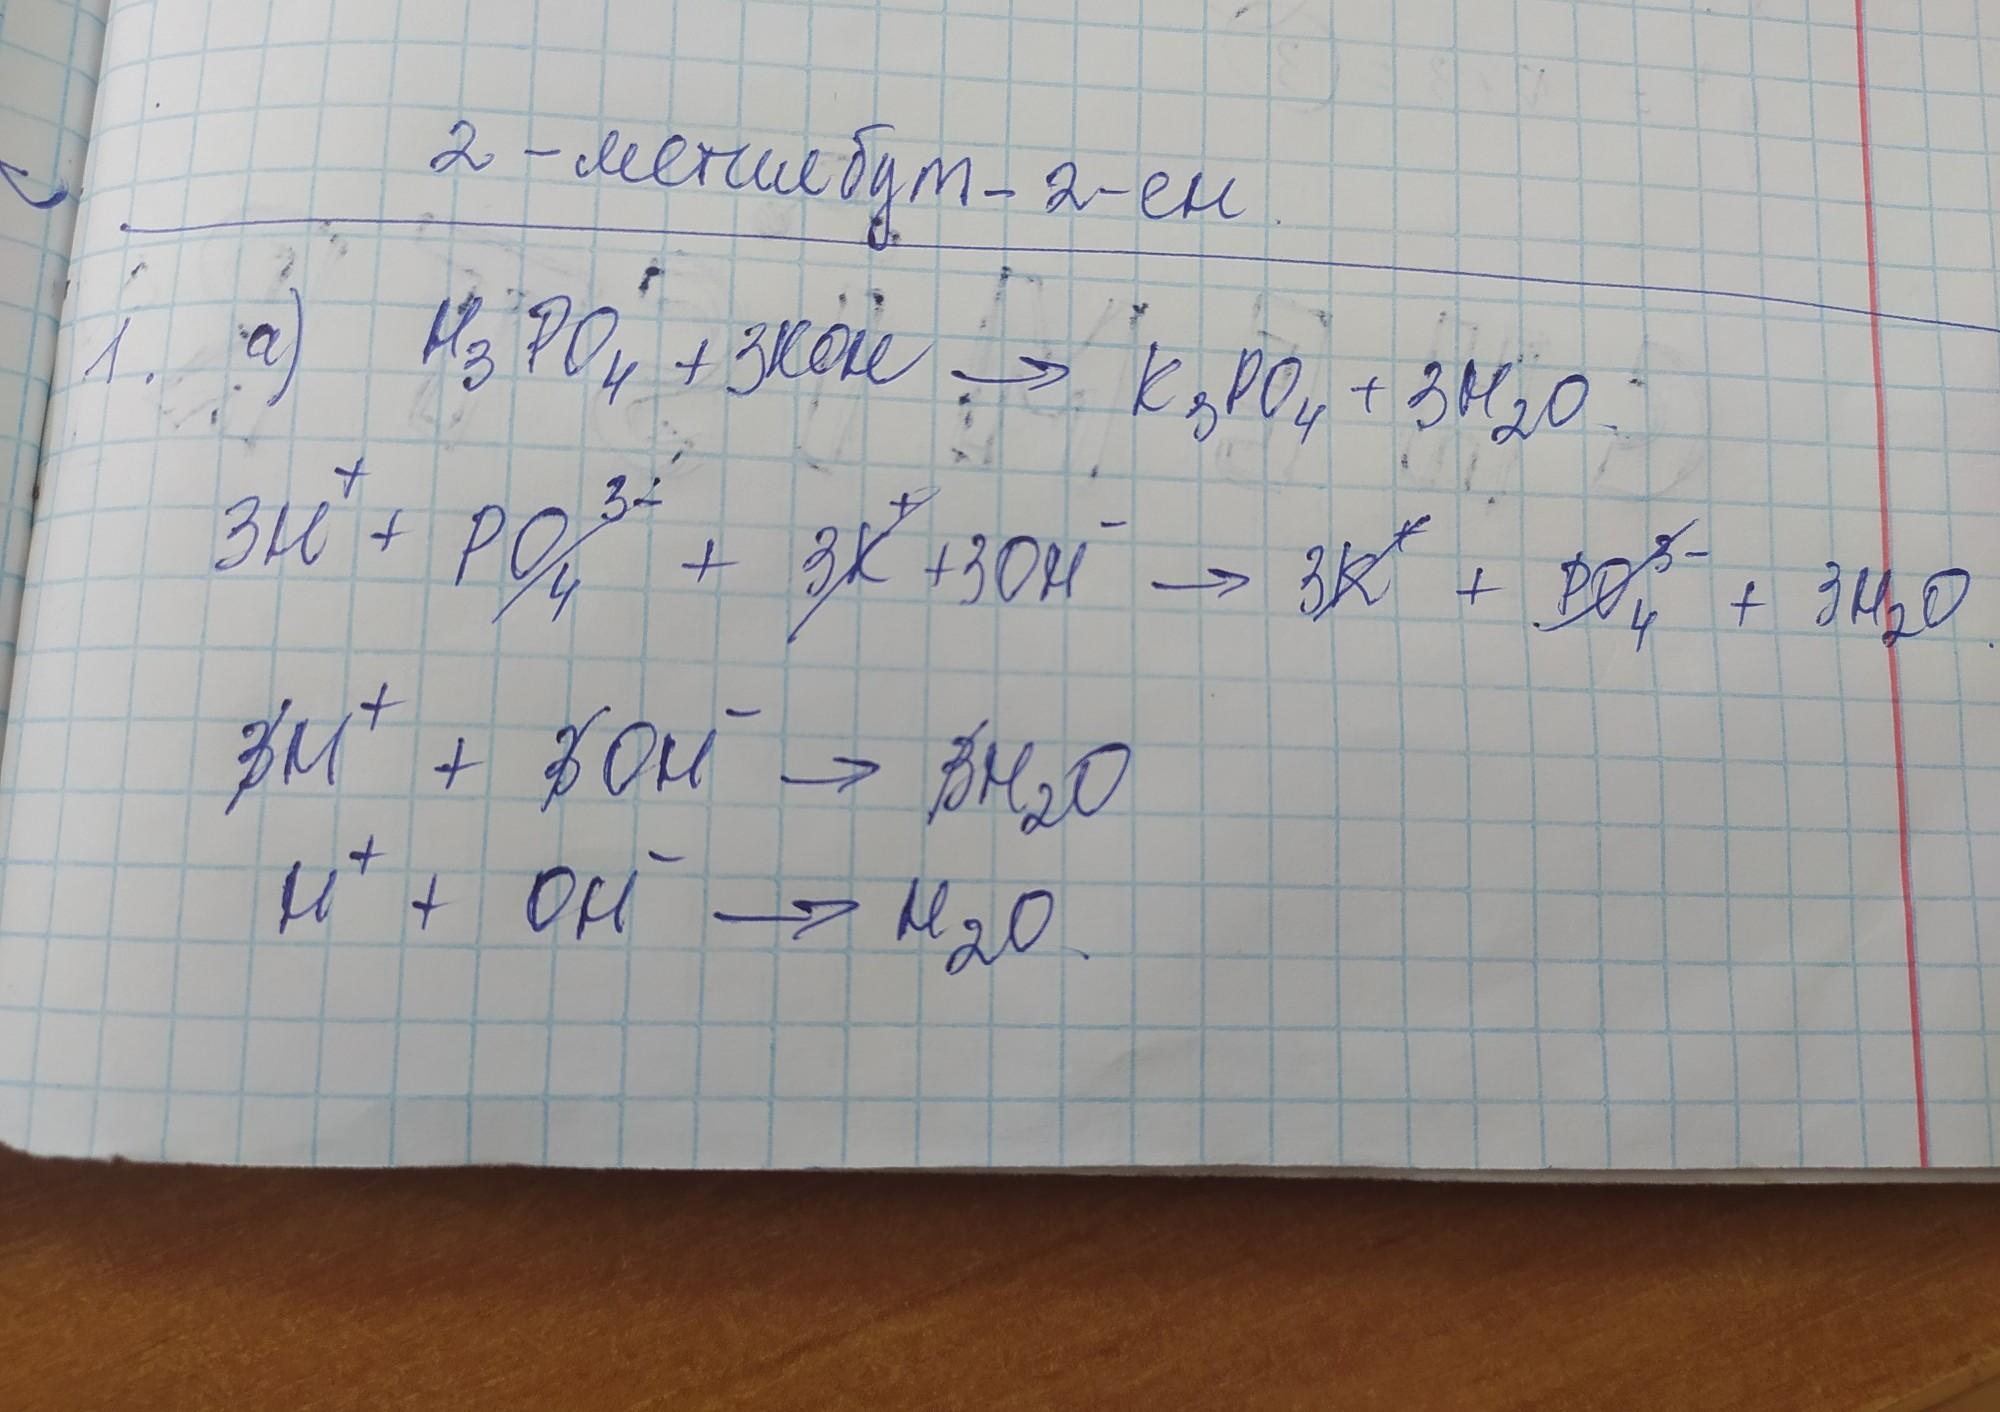 2-метилбут-2-ен.
1. а) H₃PO₄ + 3KOH → K₃PO₄ + 3H₂O.
3H⁺ + PO₄³⁻ + 3K⁺ + 3OH⁻ → 3K⁺ + PO₄³⁻ + 3H₂O.
3H⁺ + 3OH⁻ → 3H₂O
H⁺ + OH⁻ → H₂O.